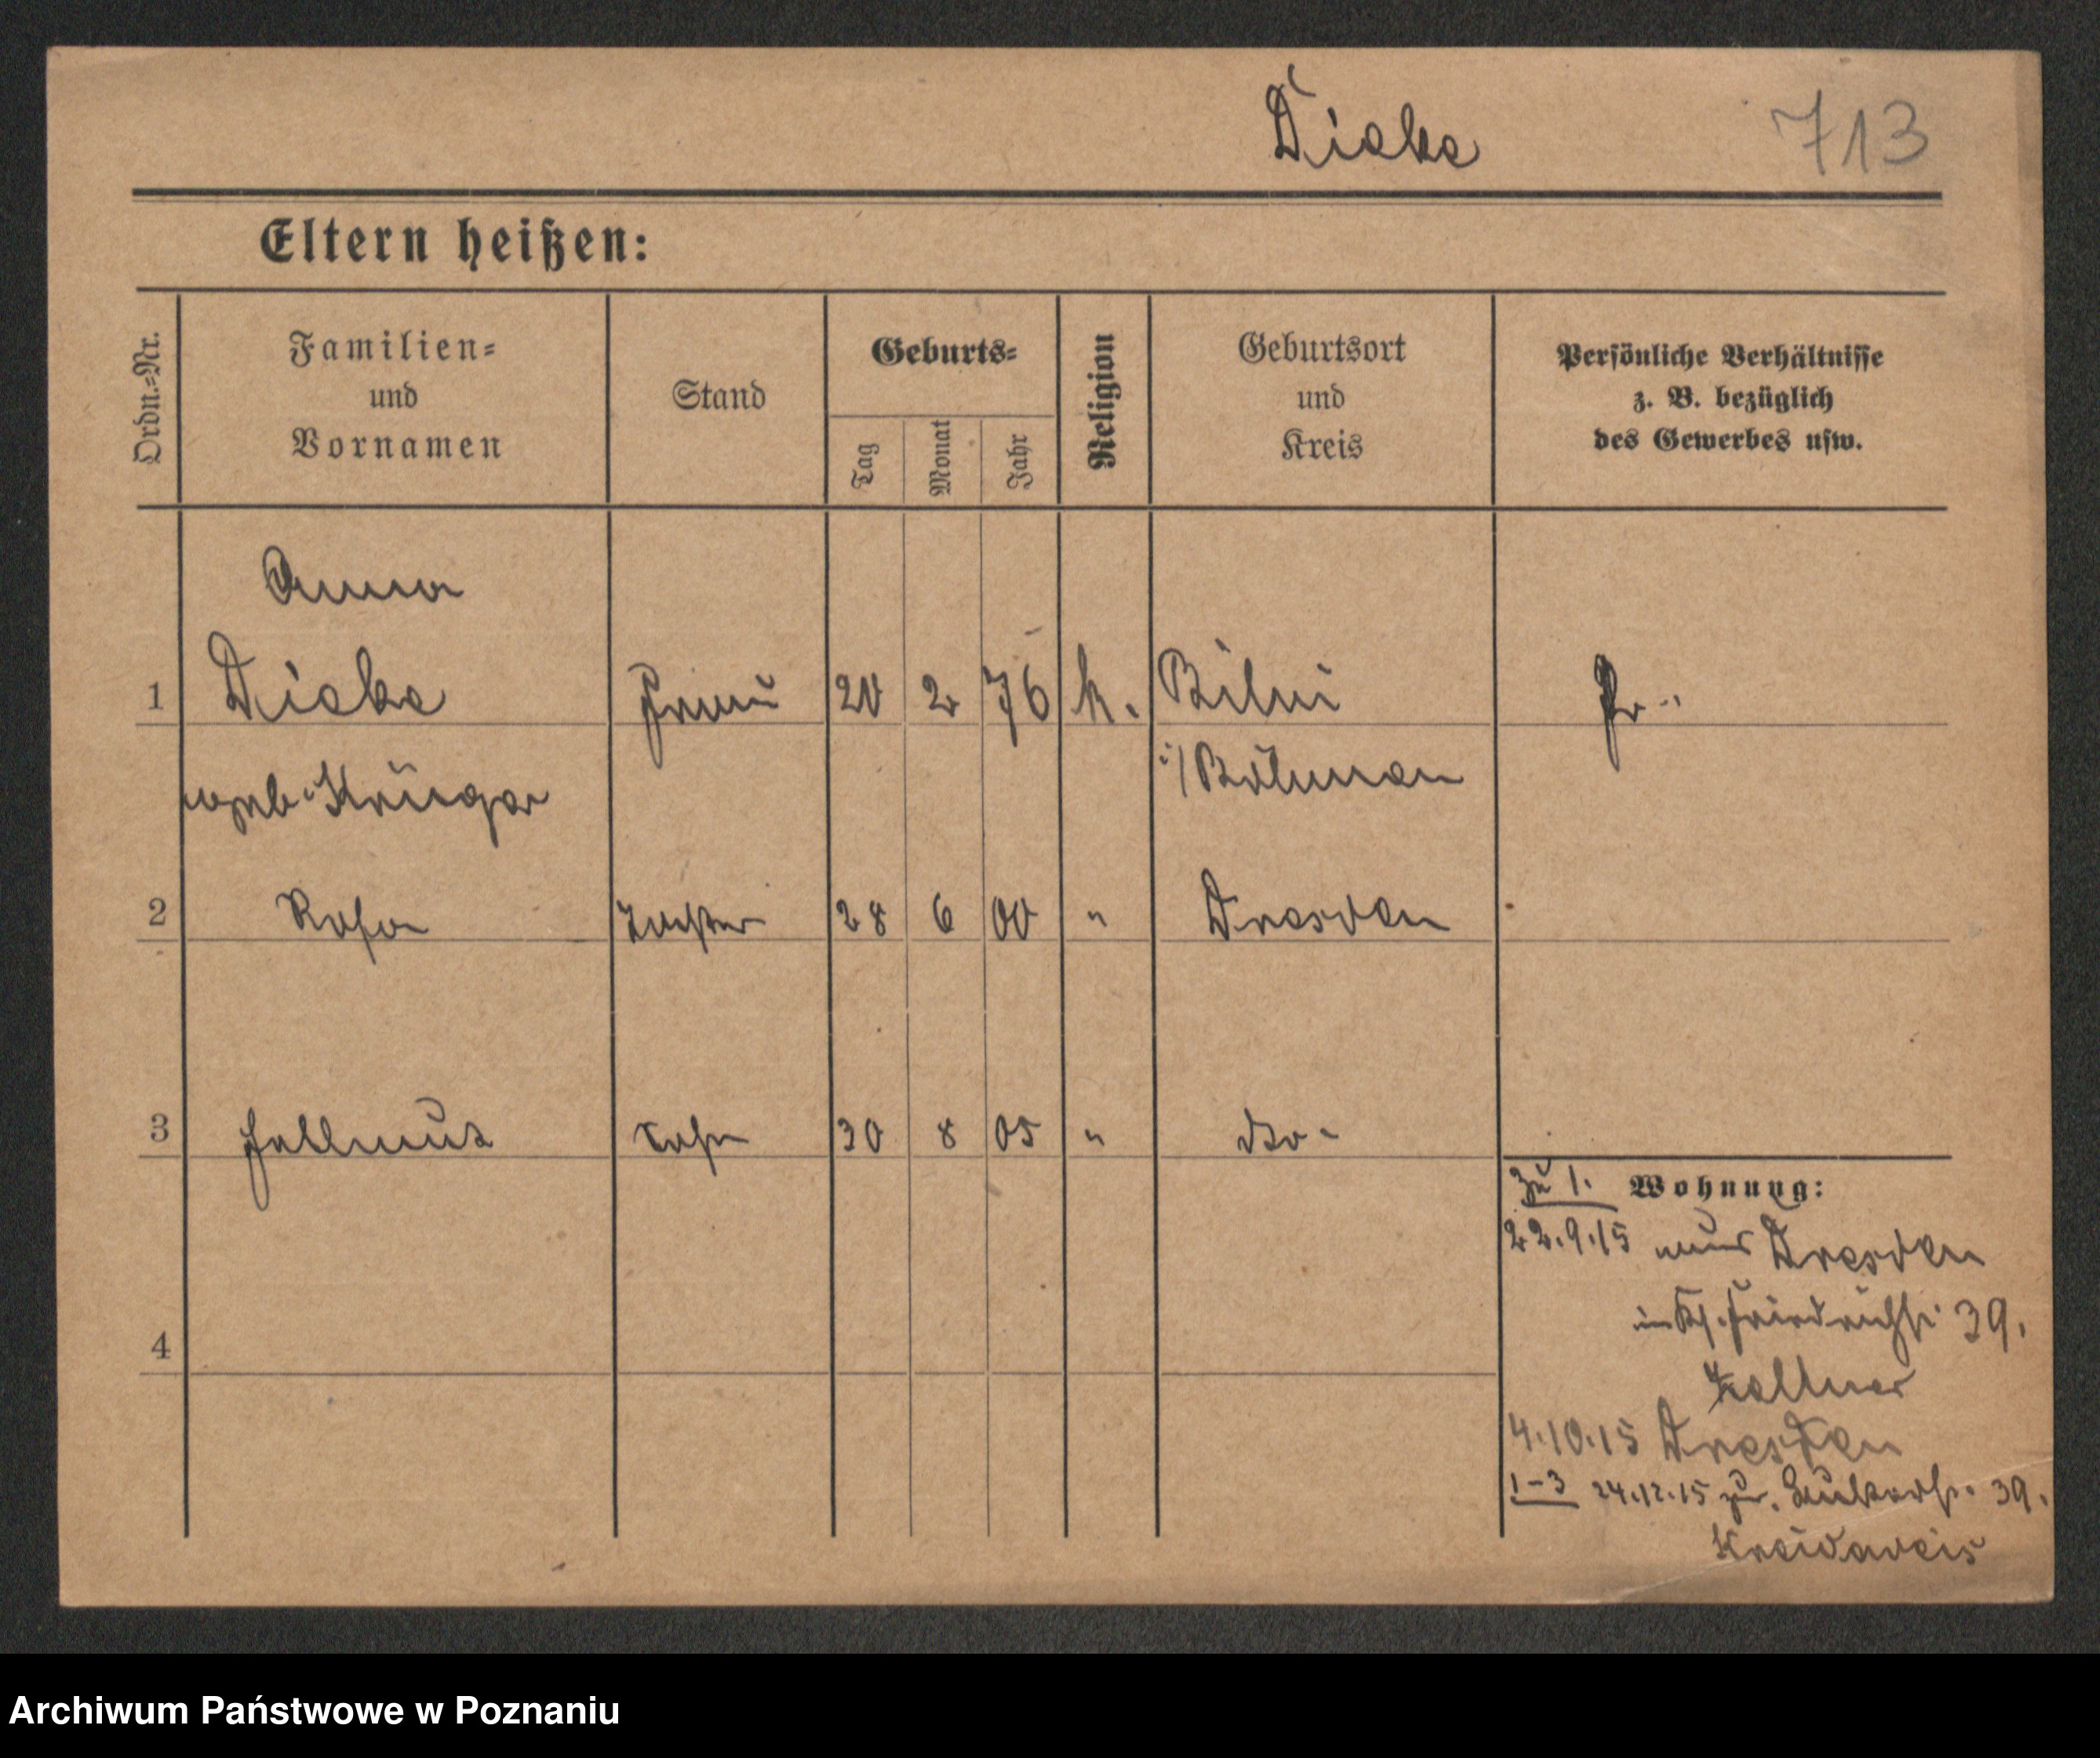 Dieke 713
Eltern heißen:
Ordn.=Nr.
Familien=
und
Vornamen
Stand
Geburts=
Tag
Monat
Jahr
Religion
Geburtsort
und
Kreis
Persönliche Verhältnisse
z. B. bezüglich
des Gewerbes usw.
Anna
1 Dieke Frau 20 2 76 k. Bilin Pr.
geb. Krüger i/Böhmen
2 Rosa Tochter 28 6 00 " Dresden
3 Hellmut Sohn 30 8 05 " dto.
zu 1. Wohnung:
22.9.15 aus Dresden
39.
Kellner
4
4.10.15 Dresden
1-3 24.12.15 39.